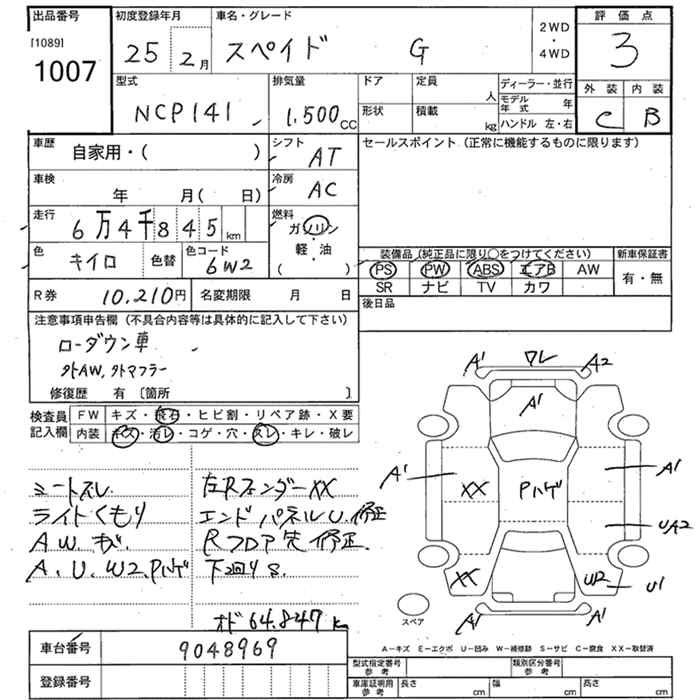 出品番号
[1089]
1007
初度登録年月
25 2月
車名・グレード
スペイド G
2WD
・
4WD
評価点
3
外装 内装
C B
型式
NCP141
排気量
1.500cc
ドア
形状
定員 人
積載 kg
ディーラー・並行
モデル年式 年
ハンドル 左・右
車歴
自家用・( )
シフト
AT
車検
年 月( 日)
冷房
AC
走行
6万4千845km
燃料
ガソリン
軽・油
( )
色
キイロ
色替
色コード
6W2
R券
10,210円
名変期限 月 日
セールスポイント(正常に機能するものに限ります)
装備品(純正品に限り○をつけてください)
新車保証書
PS PW ABS エアB AW
SR ナビ TV カワ
有・無
後日品
注意事項申告欄(不具合内容等は具体的に記入して下さい)
ローダウン車
外AW,外マフラー
修復歴 有〔箇所 〕
検査員
記入欄
FW キズ・飛石・ヒビ割・リペア跡・X要
内装 キズ・汚レ・コゲ・穴・スレ・キレ・破レ
シートスレ
ライトくもり
A.W.キズ
A.U.W2.Pハゲ
左Rフェンダー XX
エンドパネルU.修正
Rフロア先修正.
下回りS.
オド64.847km
A1 ワレ A2
A1
A1 XX Pハゲ A1
UA2
XX U2 U1
A1 A1
スペア
A－キズ E－エクボ U－凹み W－補修跡 S－サビ C－腐食 XX－取替済
車台番号
9048969
登録番号
型式指定番号
参考
類別区分番号
参考
車庫証明用
参考
長さ cm
幅 cm
高さ cm